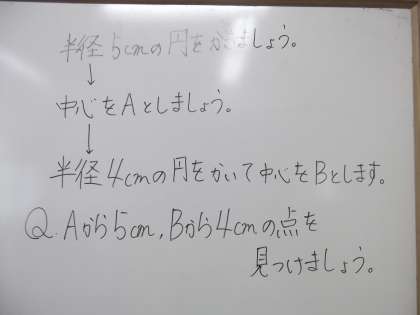 半径5cmの円をかきましょう。
↓
中心をAとしましょう。
↓
半径4cmの円をかいて中心をBとします。
Q.Aから5cm,Bから4cmの点を
見つけましょう。